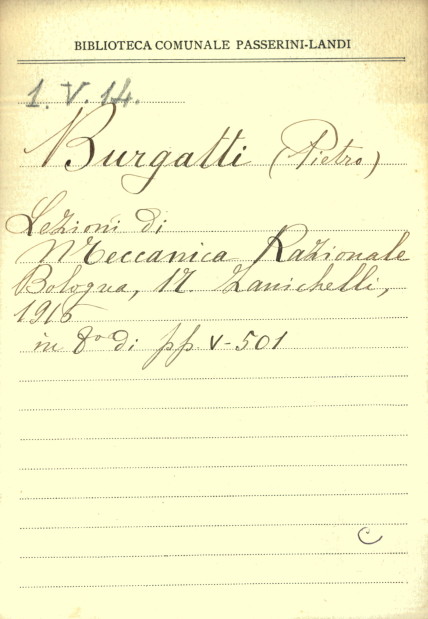 BIBLIOTECA COMUNALE PASSERINI-LANDI
1. V. 14.
Burgatti (Pietro)
Lezioni di
Meccanica Razionale
Bologna, N. Zanichelli,
1916
in 8º di pp. V-501
C